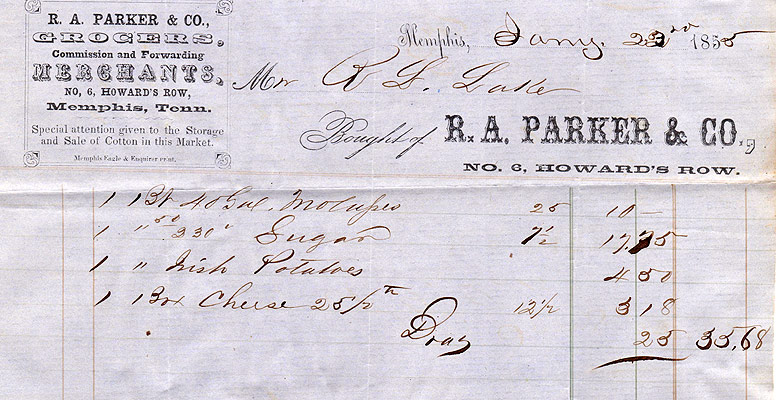 R. A. PARKER & CO.,
GROCERS,
Commission and Forwarding
MERCHANTS,
NO, 6, HOWARD'S ROW,
Memphis, Tenn.
Special attention given to the Storage
and Sale of Cotton in this Market.
Memphis Eagle & Enquirer print.
Memphis, Jany. 23rd 1855
Mr R L Lake
Bought of R. A. PARKER & CO.,
NO. 6, HOWARD'S ROW.
1 Bl 40 Gal. Molasses 25 10 –
1 " 330 " Sugar 7½ 17.75
1 " Irish Potatoes 4 50
1 Box Cheese 25½ lb 12½ 3 18
Dray 25 35,68